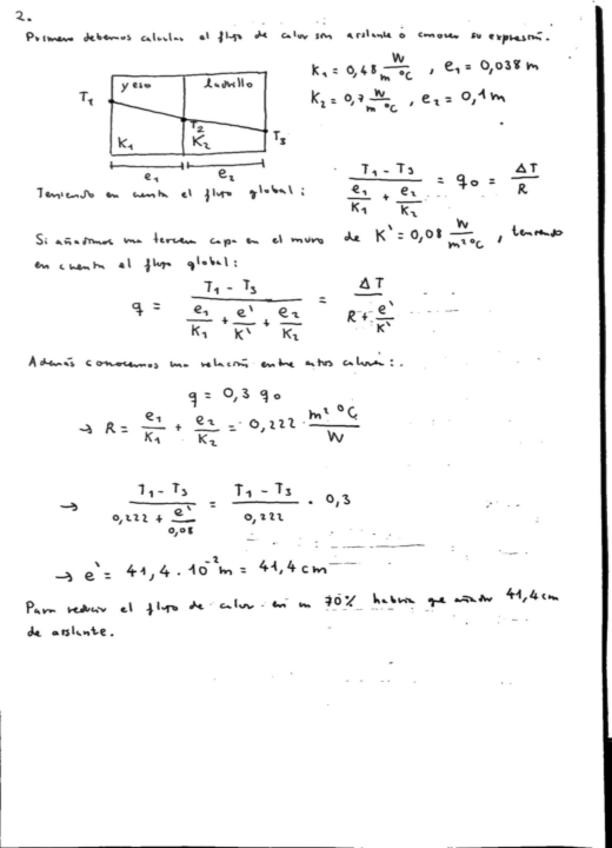 2.
Primero debemos calcular el flujo de calor sin aislante o conocer su expresión.
yeso ladrillo
T₁ T₂ T₃
K₁ K₂
e₁ e₂
K₁ = 0,48 W/m °C , e₁ = 0,038 m
K₂ = 0,7 W/m °C , e₂ = 0,1 m
Teniendo en cuenta el flujo global : (T₁ - T₃)/(e₁/K₁ + e₂/K₂) = q₀ = ΔT/R
Si añadimos una tercera capa en el muro de K` = 0,08 W/m² °C , teniendo
en cuenta el flujo global :
q = (T₁ - T₃)/(e₁/K₁ + e`/K` + e₂/K₂) = ΔT/(R + e`/K`)
Además conocemos una relación entre estos calores :.
q = 0,3 q₀
→ R = e₁/K₁ + e₂/K₂ = 0,222 · m² °C/W
→ (T₁ - T₃)/(0,222 + e`/0,08) = (T₁ - T₃)/0,222 · 0,3
→ e` = 41,4 · 10⁻² m = 41,4 cm
Para reducir el flujo de calor en un 70% habría que añadir 41,4 cm
de aislante.